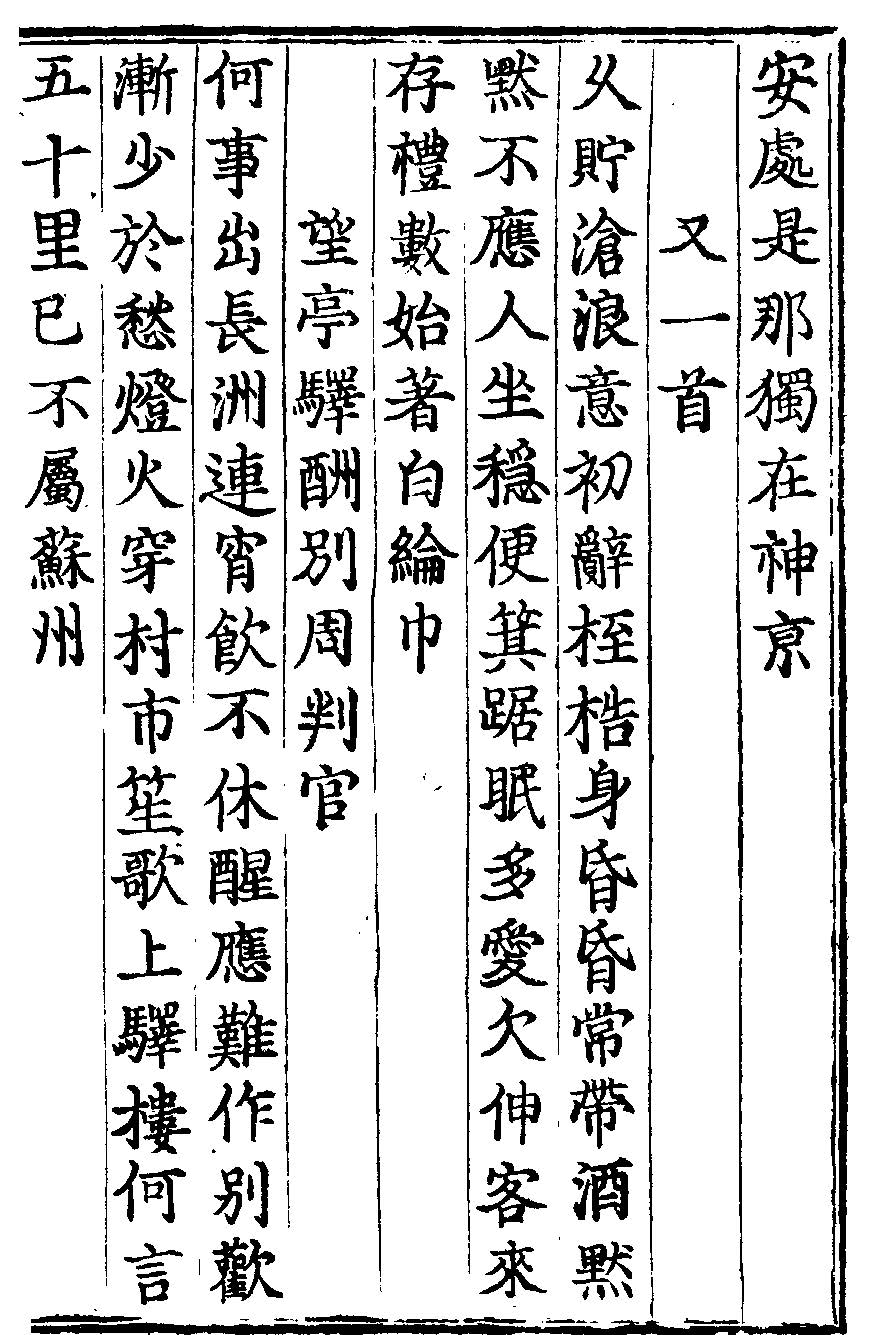 安處是那獨在神京
又一首
久貯滄浪意初辭桎梏身昏昏常帶酒默
默不應人坐穏便箕踞眠多愛欠伸客來
存禮數始著白綸巾
望亭驛酬别周判官
何事出長洲連宵飲不休醒應難作别歡
漸少於愁燈火穿村市笙歌上驛樓何言
五十里已不屬蘇州